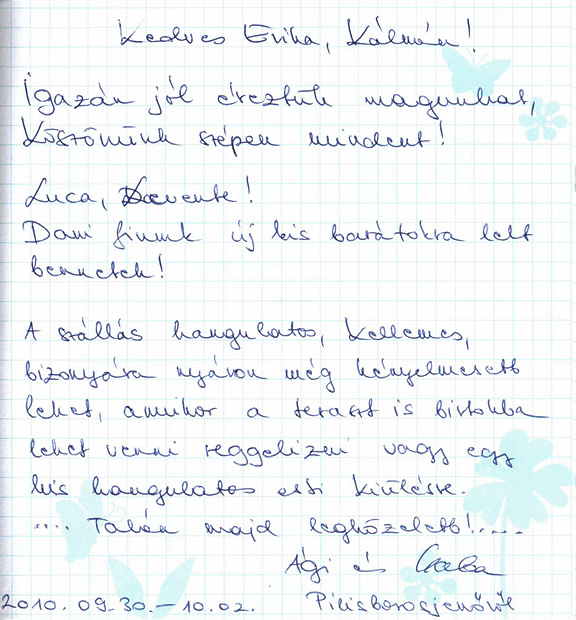 Kedves Erika, Kálmán!
Igazán jól éreztük magunkat,
Köszönünk szépen mindent!
Luca, Levente!
Dani fiunk új kis barátokra lelt
bennetek!
A szállás hangulatos, kellemes,
bizonyára nyáron még kényelmesebb
lehet, amikor a teraszt is birtokba
lehet venni reggelizni vagy egy
kis hangulatos esti kiülésre.
.... Talán majd legközelebb!....
Ági és Csaba
2010.09.30.-10.02. Pilisborosjenőről